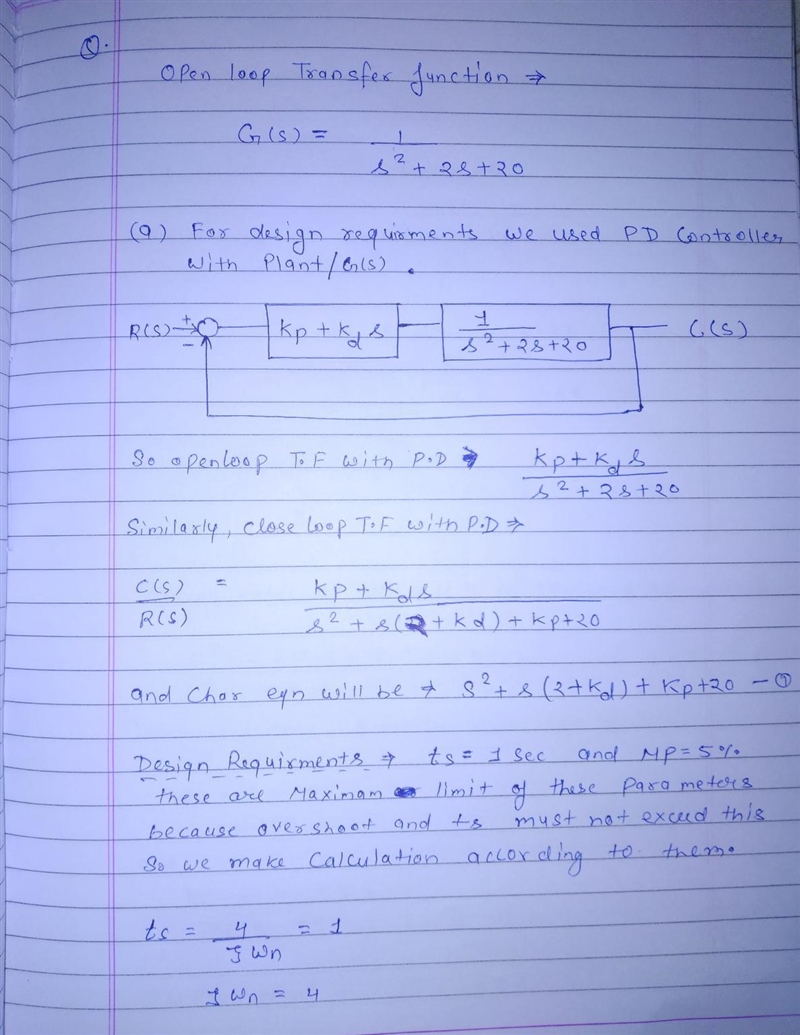 Q.
Open loop Transfer function ⇒
G(s) = 1 / s² + 2s + 20
(a) For design requirments we used PD Controller
with Plant/G(s).
R(s) + − Kp + Kd s 1 / s² + 2s + 20 C(s)
So openloop T.F with P.D ⇒ Kp + Kd s / s² + 2s + 20
Similarly, Close loop T.F with P.D ⇒
C(s) / R(s) = Kp + Kd s / s² + s(2 + Kd) + Kp + 20
and Char eqn will be ⇒ s² + s(2 + Kd) + Kp + 20 — ①
Design Requirments ⇒ ts = 1 sec and MP = 5%
these are Maximam limit of these Parameters
because overshoot and ts must not exceed this
So we make Calculation according to them.
ts = 4 / ξ ωn = 1
ξ ωn = 4